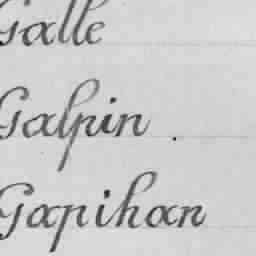 Galle
Galpin .
Gapihan